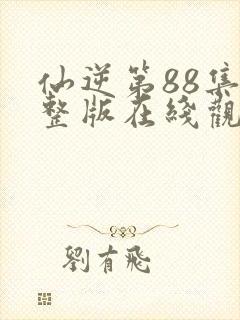 仙逆第88集
整版在綫觀
劉有飛